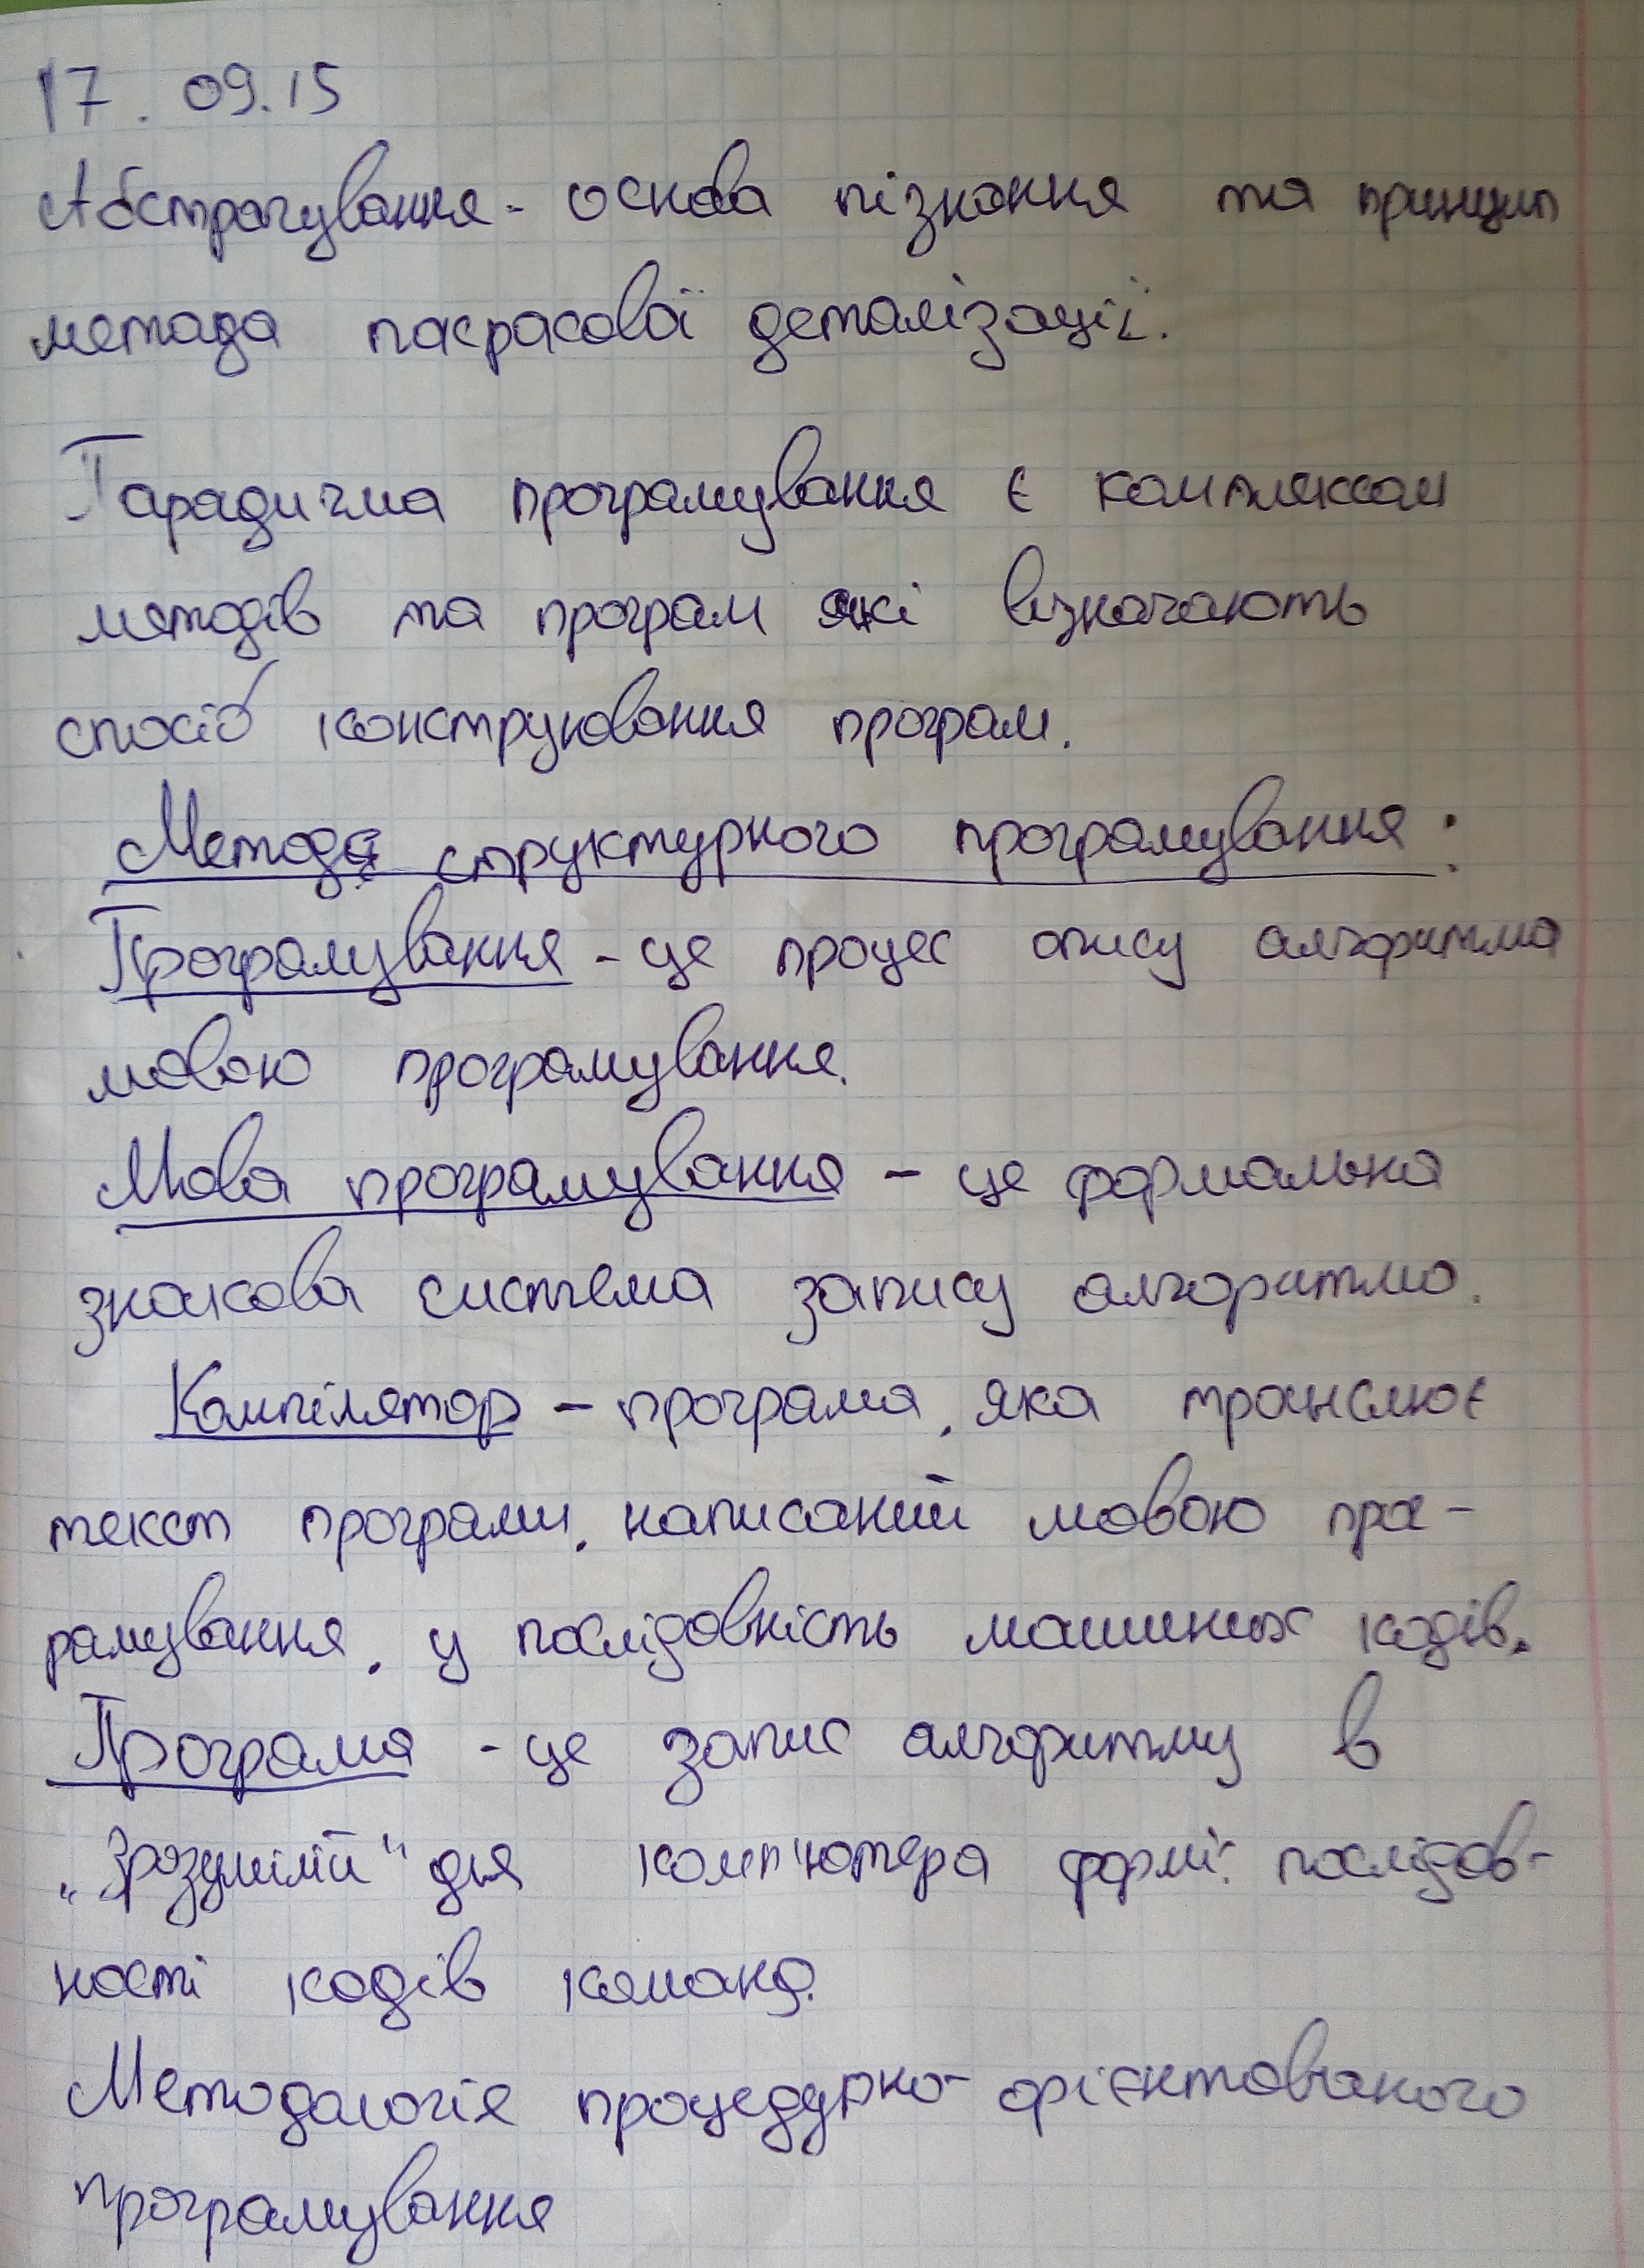 17. 09.15
Абстрагування - основа пізнання та принцип
метода покрокової деталізації.
Парадигма програмування є комплексом
методів та програм які визначають
спосіб конструювання програм.
Метода структурного програмування:
Програмування - це процес опису алгоритма
мовою програмування.
Мова програмування - це формальна
знакова система запису алгоритма.
Компілятор - програма, яка транслює
текст програми, написаний мовою про-
рамування, у послідовність машиних кодів.
Програма - це запис алгоритму в
"Зрозумілій" для комп'ютера формі: послідов-
ності кодів команд.
Методологія процедурно-орієнтованого
програмування